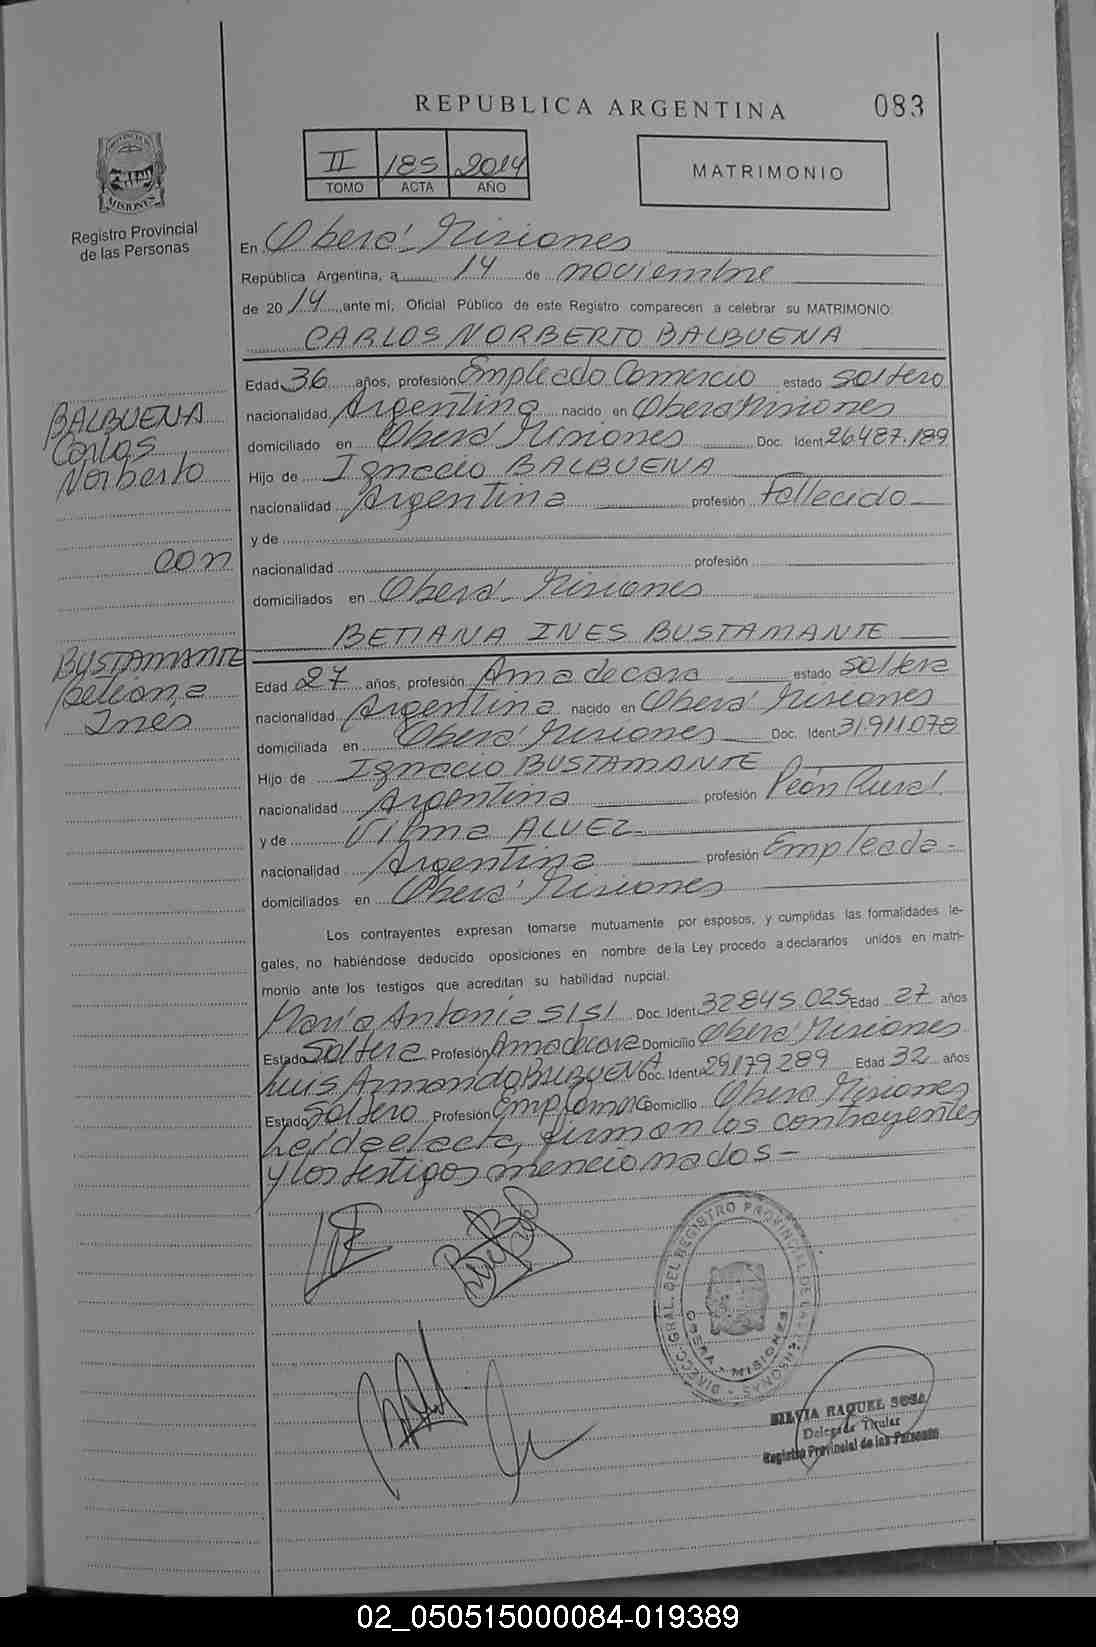 REPUBLICA ARGENTINA 083
II 185 2014
TOMO ACTA AÑO
MATRIMONIO
PROVINCIA DE MISIONES
Registro Provincial
de las Personas
En Oberá Misiones
República Argentina, a 14 de noviembre
de 2014 ante mí, Oficial Público de este Registro comparecen a celebrar su MATRIMONIO:
CARLOS NORBERTO BALBUENA
Edad 36 años, profesión Empleado Comercio estado soltero
BALBUENA
Carlos
Norberto
con
BUSTAMANTE
Betiana
Ines
nacionalidad Argentina nacido en Oberá Misiones
domiciliado en Oberá Misiones Doc. Ident 26.487.189
Hijo de Ignacio BALBUENA
nacionalidad Argentina profesión Fallecido
y de
nacionalidad profesión
domiciliados en Oberá Misiones
BETIANA INES BUSTAMANTE
Edad 27 años, profesión Ama de casa estado soltera
nacionalidad Argentina nacido en Oberá Misiones
domiciliada en Oberá Misiones Doc. Ident 31.911.078
Hijo de Ignacio BUSTAMANTE
nacionalidad Argentina profesión Peón Rural
y de Vilma ALVEZ
nacionalidad Argentina profesión Empleada
domiciliados en Oberá Misiones
Los contrayentes expresan tomarse mutuamente por esposos, y cumplidas las formalidades le-
gales, no habiéndose deducido oposiciones en nombre de la Ley procedo a declararlos unidos en matri-
monio ante los testigos que acreditan su habilidad nupcial.
María Antonia SISI Doc. Ident 32845.025 Edad 27 años
Estado Soltera Profesión Ama de casa Domicilio Oberá Misiones
Luis Armando BALBUENA Doc. Ident 29179289 Edad 32 años
Estado Soltero Profesión Domicilio Oberá Misiones
Leída el acta, firman los contrayentes
y los testigos mencionados -
DIRECC. GRAL. DEL REGISTRO PROVINCIAL DE LAS PERSONAS
OBERA - MISIONES
SILVIA RAQUEL SOSA
Delegada Titular
Registro Provincial de las Personas
02_050515000084-019389